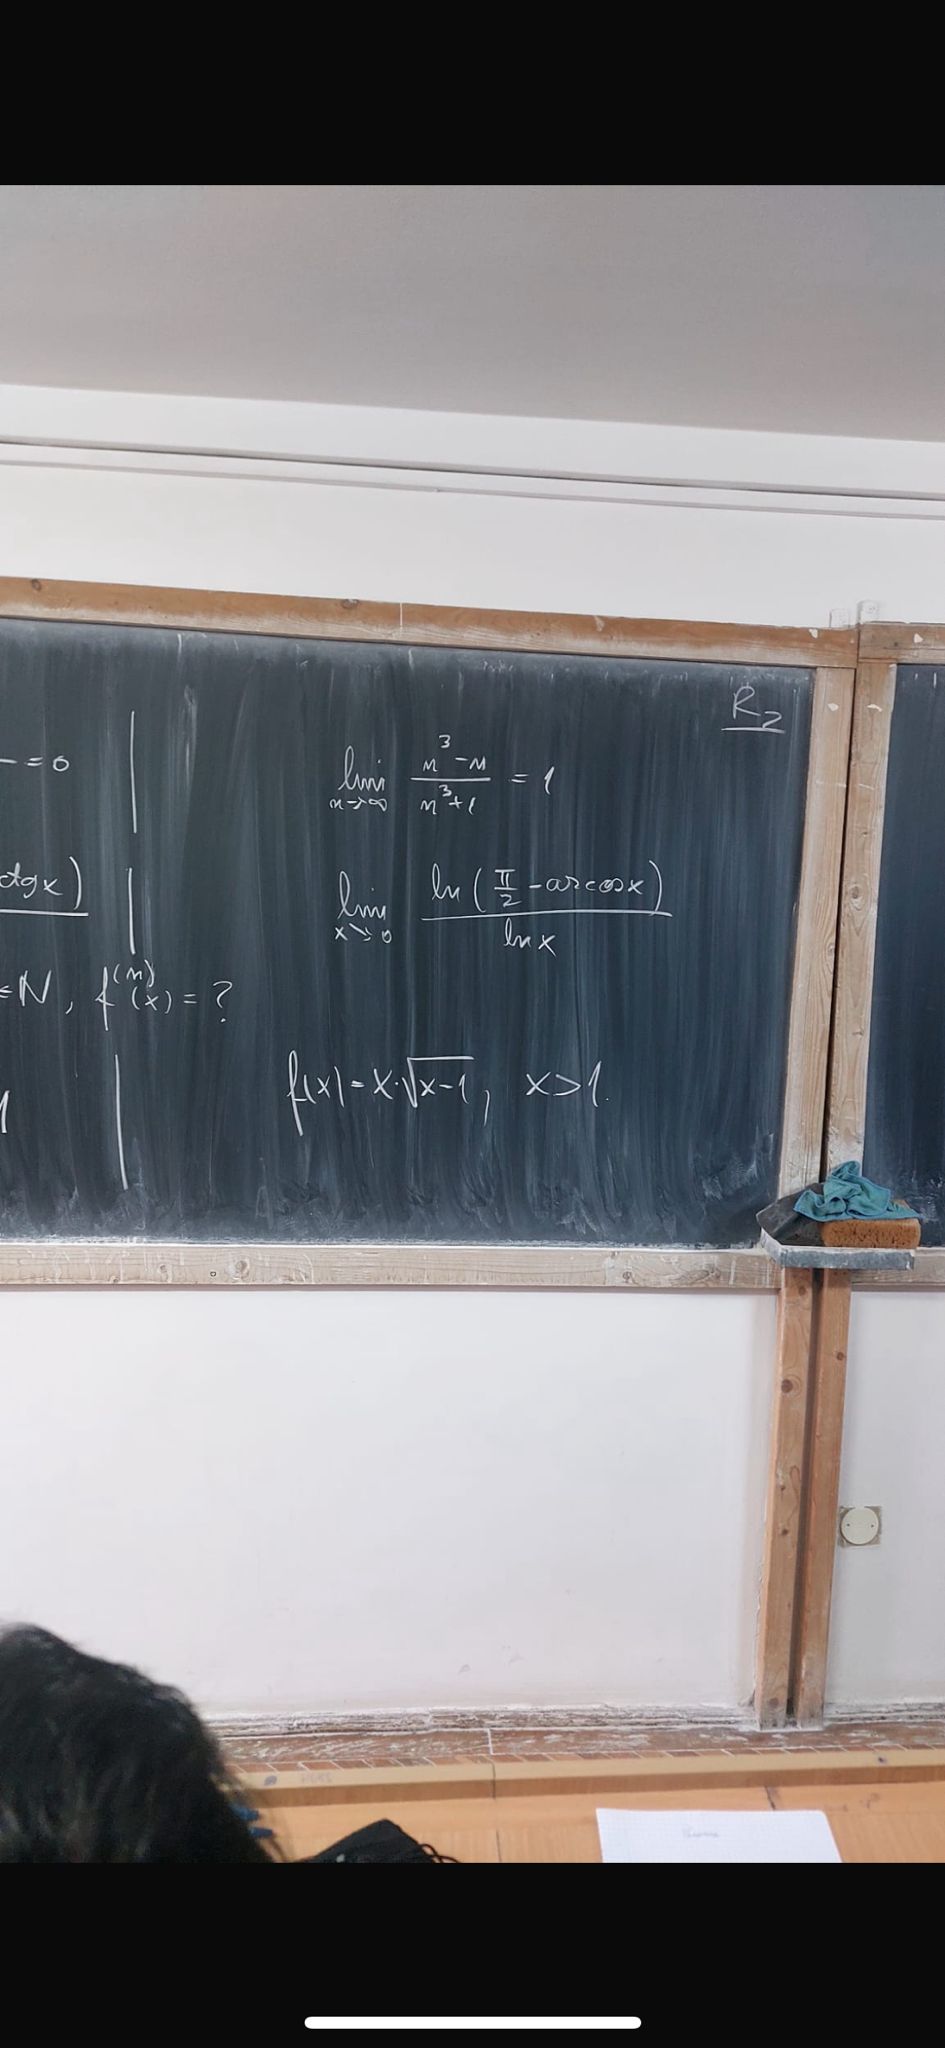 R₂
— = 0
lim n→∞ (n³ - n)/(n³ + 1) = 1
ctgx)
lim x↘0 ln(π/2 - arccosx)/lnx
∈ N, f⁽ⁿ⁾(x) = ?
f(x) = x·√(x-1), x > 1.
1